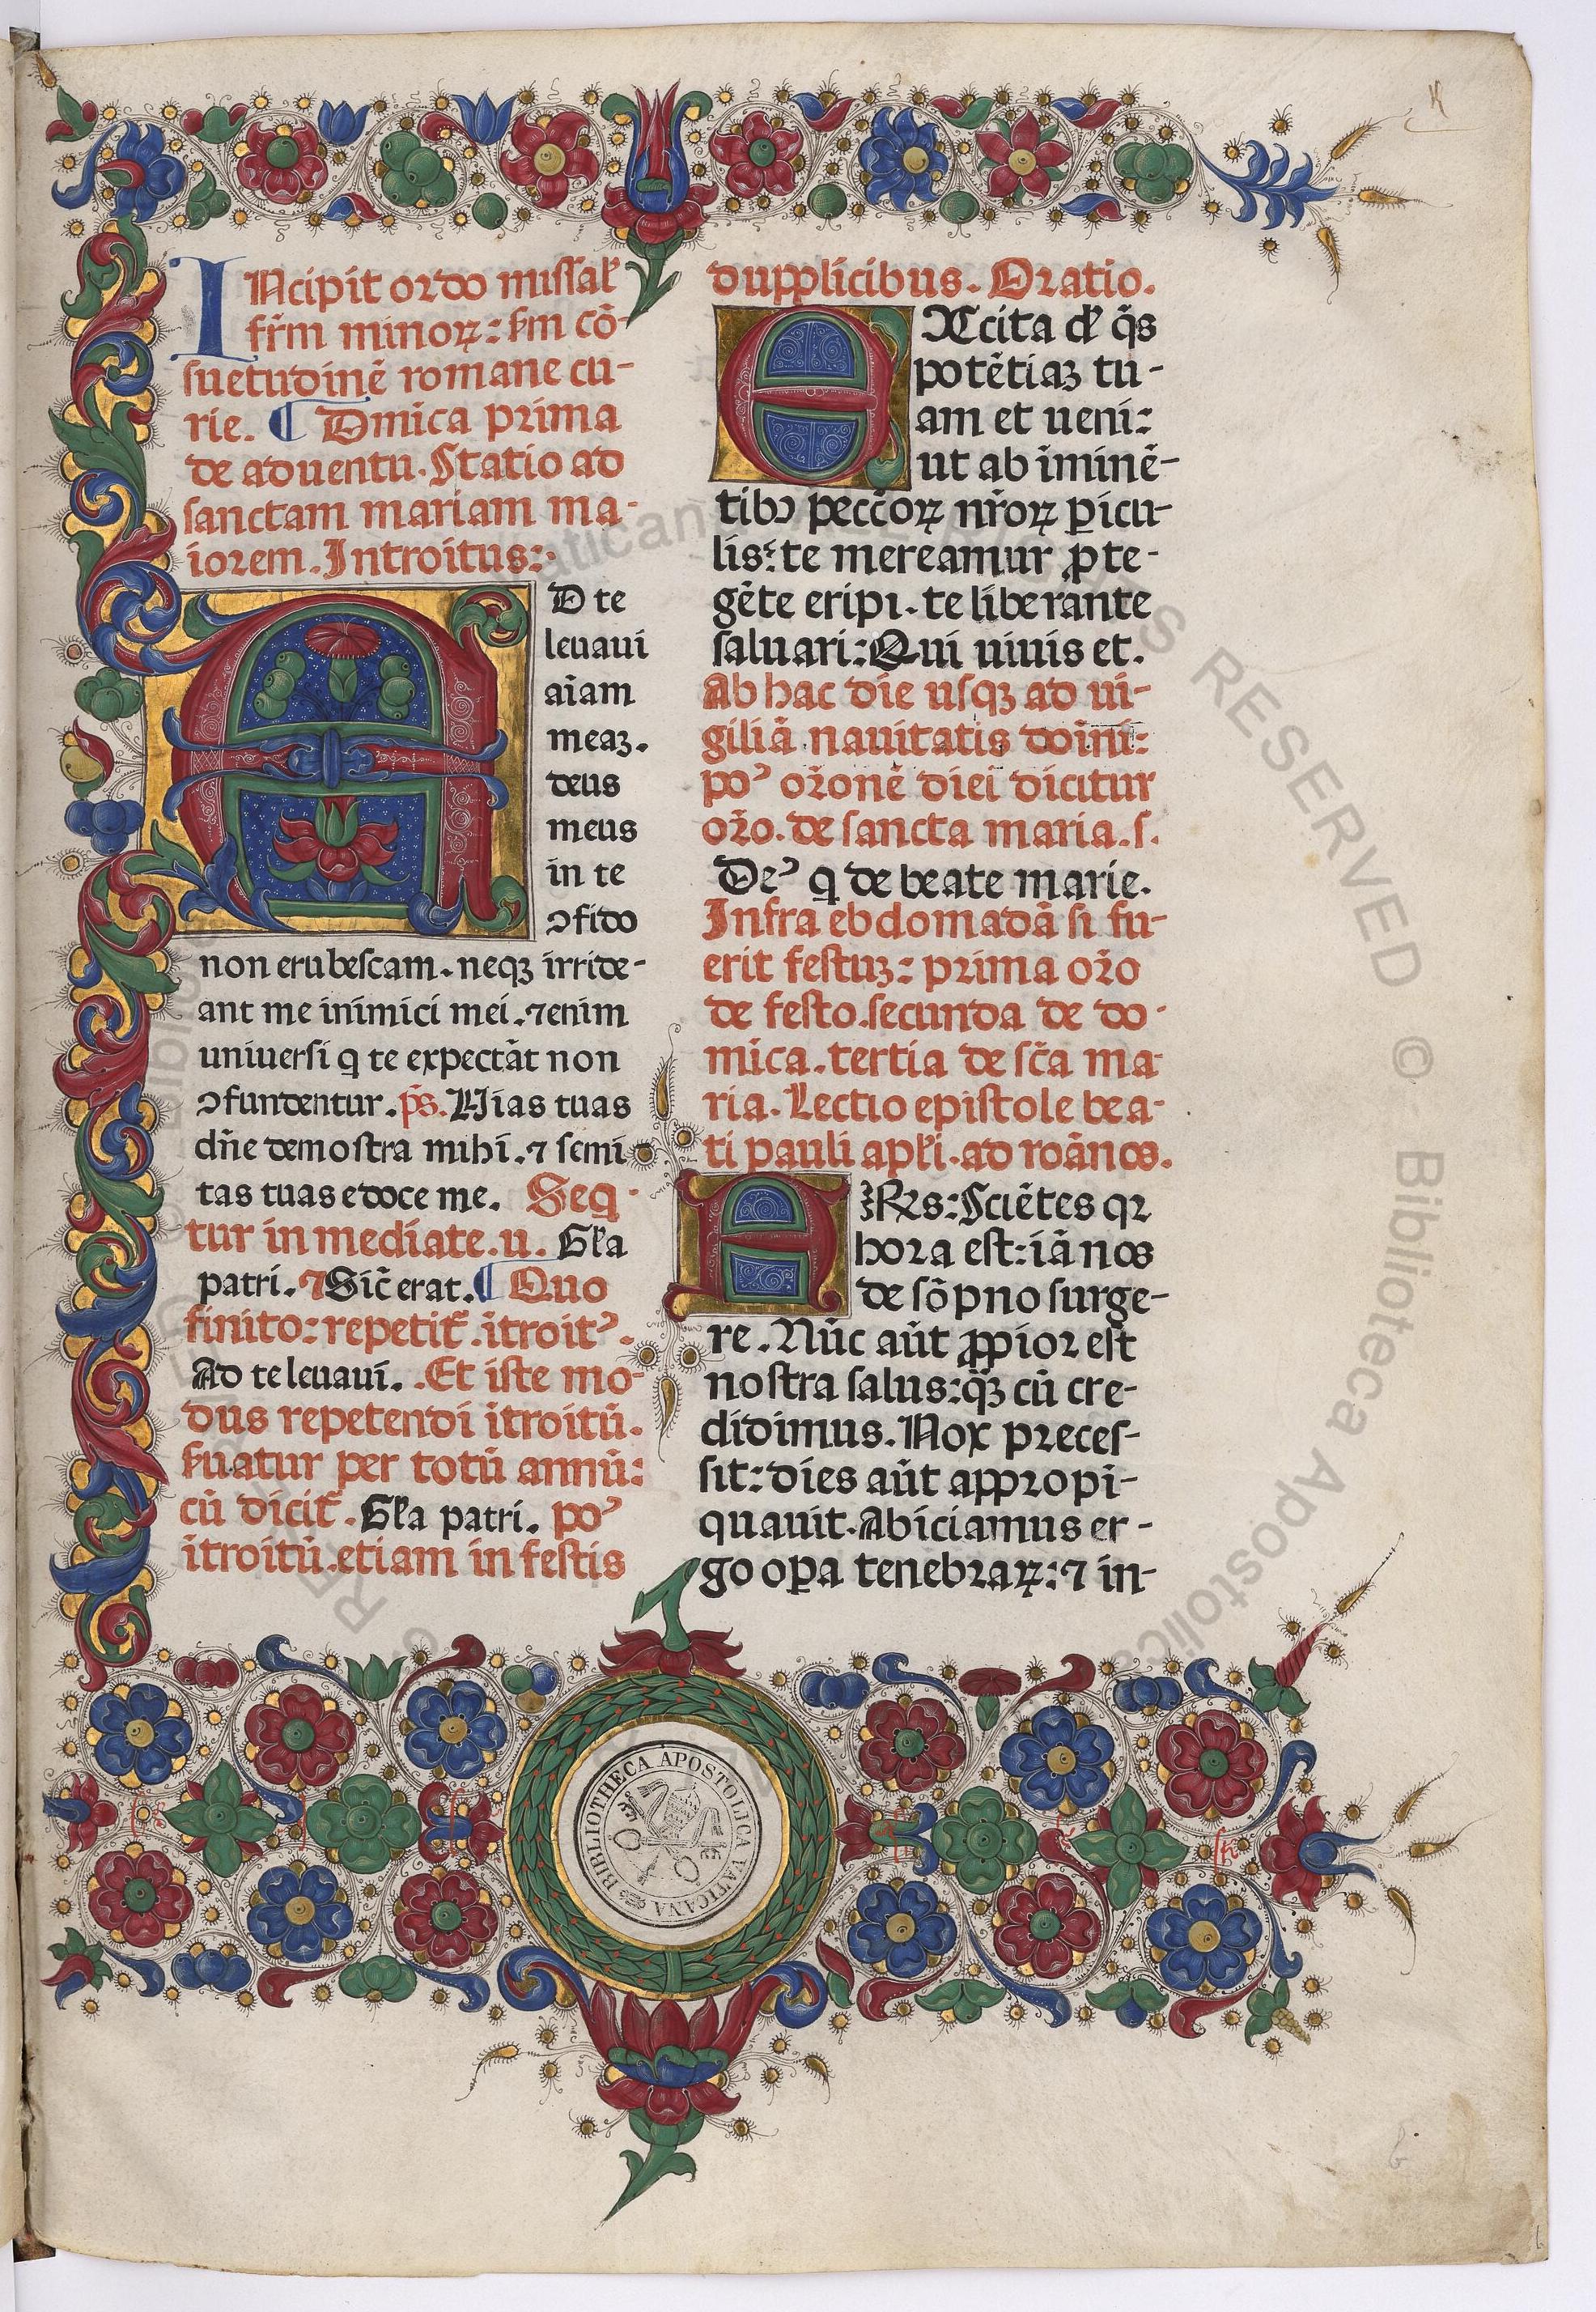 INcipit ordo missal̛
fr̄m minoꝝ: ẜm cō-
suetudinē romane cu-
rie. ¶ Dmica prima
de aduentu. Statio ad
sanctam mariam ma-
iorem. Introitus:
AD te
leuaui
aīam
meaꝫ.
deus
meus
in te
ↄfido
non erubescam. neqꝫ irride-
ant me inimici mei. ⁊enim
uniuersi q te expectāt non
ↄfundentur. p̄s. Uias tuas
dn̄e demostra mihi. ⁊ semi
tas tuas edoce me. Seq
tur inmediate. u. Gl̛a
patri. ⁊ Sic̄ erat. ¶ Quo
finito: repetit̄. ītroitꝰ.
Ad te leuaui. Et iste mo-
dus repetendi ītroitū.
ẜuatur per totū annū:
cū dicit̄. Gl̛a patri. poꝰ
ītroitū. etiam in festis
dupplicibus. Oratio.
EXcita d̄ q̄s
potētiaꝫ tu-
am et ueni:
ut ab īminē-
tibꝰ pecc̄oꝝ nr̄oꝝ ꝑicu-
lis: te mereamur ꝓte-
gēte eripi. te liberante
saluari: Qui uiuis et.
Ab hac die usqꝫ ad ui-
giliā nauitatis doīni:
poꝰ or̄onē diei dicitur
or̄o. de sancta maria. s.
Deꝰ q de beate marie.
Infra ebdomadā si fu-
erit festuꝫ: prima or̄o
de festo. secunda de do-
mica. tertia de sc̄a ma
ria. Lectio epistole bea-
ti pauli apl̛i. ad roānos.
FRs: Sciētes qꝛ
hora est: iā nos
de sōpno surge-
re. Nūc aūt ꝓpior est
nostra salus: q̄ꝫ cū cre-
didimus. Nox preces-
sit: dies aūt appropi-
quauit. Abiciamus er-
go oꝑa tenebraꝝ: ⁊ in-
BIBLIOTHECA APOSTOLICA VATICANA
RESERVED © Biblioteca Apostolica